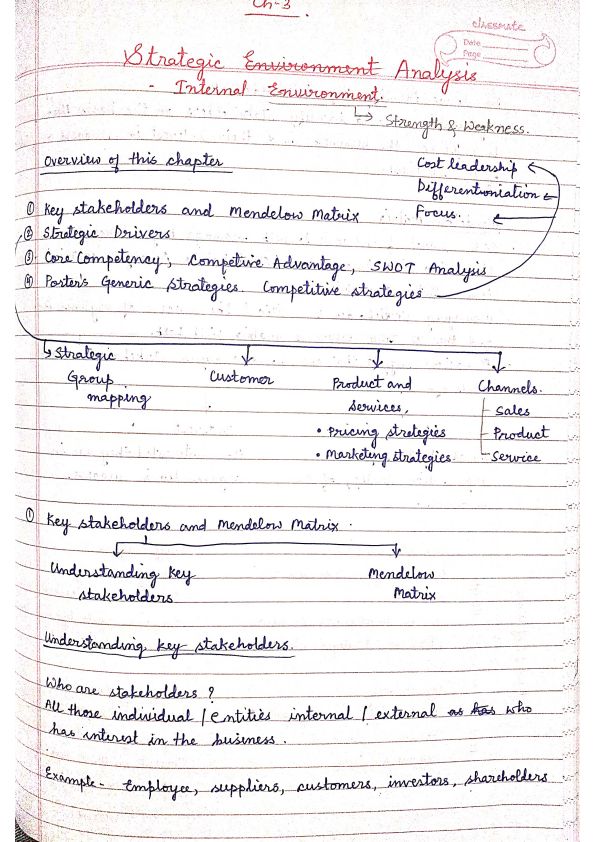 Ch-3.
classmate
Date
Page
Strategic Environment Analysis
- Internal Environment.
↳ Strength & Weakness.
Overview of this chapter
Cost leadership
Differentioniation
Focus.
① Key stakeholders and Mendelow Matrix
② Strategic Drivers
③ Core Competency, Competive Advantage, SWOT Analysis
④ Porter's Generic Strategies. Competitive strategies
Strategic Group mapping
Customer
Product and Services,
• Pricing stretegies
• Marketing strategies
Channels.
- Sales
- Product
- Service
① Key stakeholders and Mendelow Matrix.
Understanding key stakeholders
Mendelow Matrix
Understanding key stakeholders.
Who are stakeholders ?
All those individual / entities internal / external as has who
has interest in the business.
Example - Employee, suppliers, customers, investors, shareholders